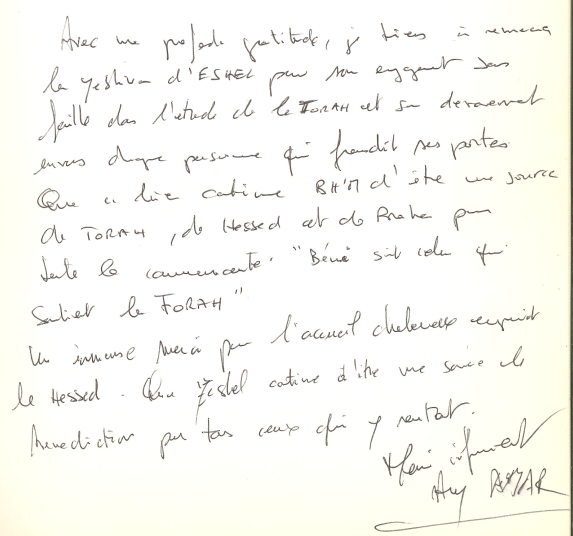 Avec une profonde gratitude, je tiens à remercier
la yeshiva d'ESHEL pour son engagement sans
faille dans l'étude de la TORAH et son dévouement
envers chaque personne qui franchit ses portes.
Que ce lieu continue BH'M d'être une source
de TORAH, de Hessed et de Braha pour
toute la communauté. "Béni soit celui qui
soutient la TORAH"
Un immense Merci pour l'accueil chaleureux empreint
le Hessed. Que Eshel continue d'être une source de
benediction pour tous ceux qui y rentrent.
Merci infiniment